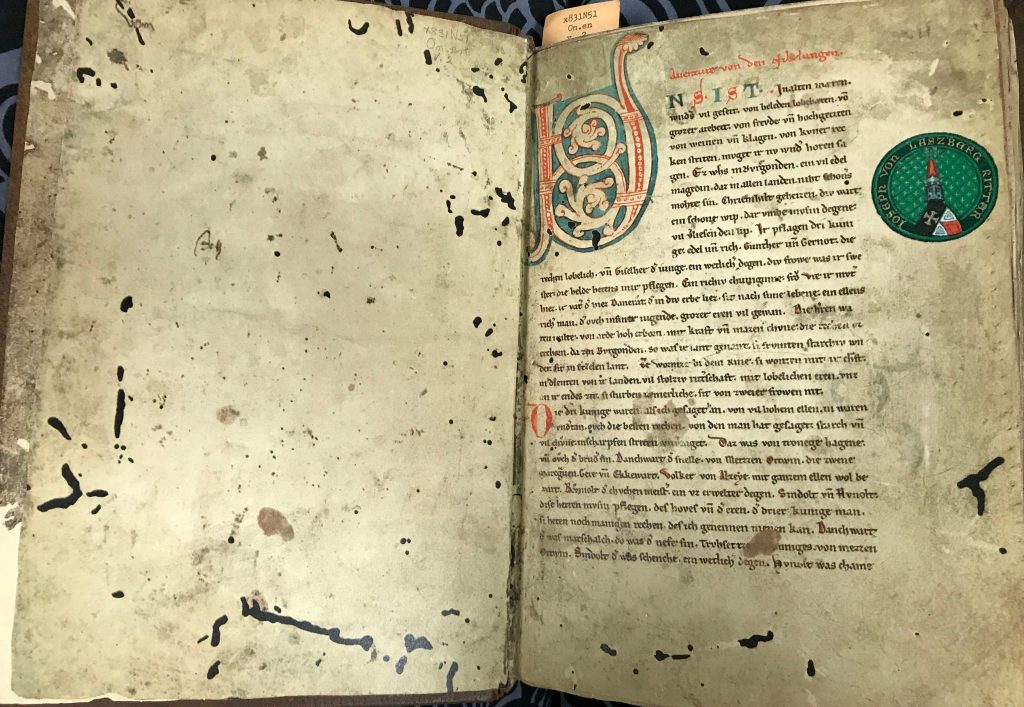 x831N51
On.en
v.2
x831N51
Aventure von den Nibelungen.
VNS. IST. In alten mæren.
wnd͛s vil geseit. von heleden lobebæren. võ
grozer arebeit. von frevde vñ hochgeciten
von weinen vñ klagen. von kvner rec
ken striten. mvget ir nv wnd͛ horen sa
gen. Ez whs in Bvrgonden. ein vil edel
magedin. daz in allen landen. niht schoners
mohte sin. Chriemhilt geheizen. div wart
ein schone wip. dar vmbe mvsin degene
vil v͛liesen den lip. Ir pflagen dri kuni
ge. edel vñ rich. Gunther vñ Gernot. die
rechen lobelich. vñ Giselher d͛ iunge. ein wetlich͛ degen. div frowe was ir swe
ster. die helde hetens mit pflegen. Ein richiv chuniginne. frō Vte ir mvt͛
hiez. ir vat͛ d͛ hiez Dancrat. d͛ in div erbe liez. sit nach sime lebene. ein ellens
rich͛ man. d͛ ovch in siner iugende. grozer eren vil gewan. Die h͛ren wa
ren milte. von arde hoh erborn. mit kraft vñ mazen chvne. die rechen vz
erchorn. da zen Bvrgonden. so was ir lant genant. si frvmten starchiv wn
der. sit in Ezelen lant. Ze Wormez bi dem Rine. si wonten mit ir chr̃ft.
in dienten von ir͛ landen. vil stolziv rit͛schaft. mit lobelichen eren. vnz
an ir endes zit. si sturben iæmerliche. sit von zweier frowen nit.
Die dri kunige waren. als ich gesaget han. von vil hohem ellen. in waren
vndtan. ovch die besten rechen. von den man hat gesaget. starch vñ
vil chvne. in scharpfen striten vnv͛zaget. Daz was von Tronege Hagene.
vñ ovch d͛ brud͛ sin. Danchwart d͛ snelle. von Metzzen Ortwin. die zwene
marcgraven. Gere vñ Ekkewart. Volker von Alzeye. mit ganzen ellen wol be
wart. Rvmolt d͛ chvchen meist͛. ein vz erwelter degen. Sindolt vñ Hvnolt.
dise herren mvsin pflegen. des hoves vñ d͛ eren. d͛ drier kunige man.
si heten noch manigen rechen. des ich genennen nienen kan. Danchwart
d͛ was marschalch. do was d͛ nefe sin. Trvhsetze kuniges. von Metzzen
Ortwin. Sindolt d͛ was schenche. ein wetlich͛ degen. Hvnolt was chame
IOSEPH VON LASZBERG RITTER